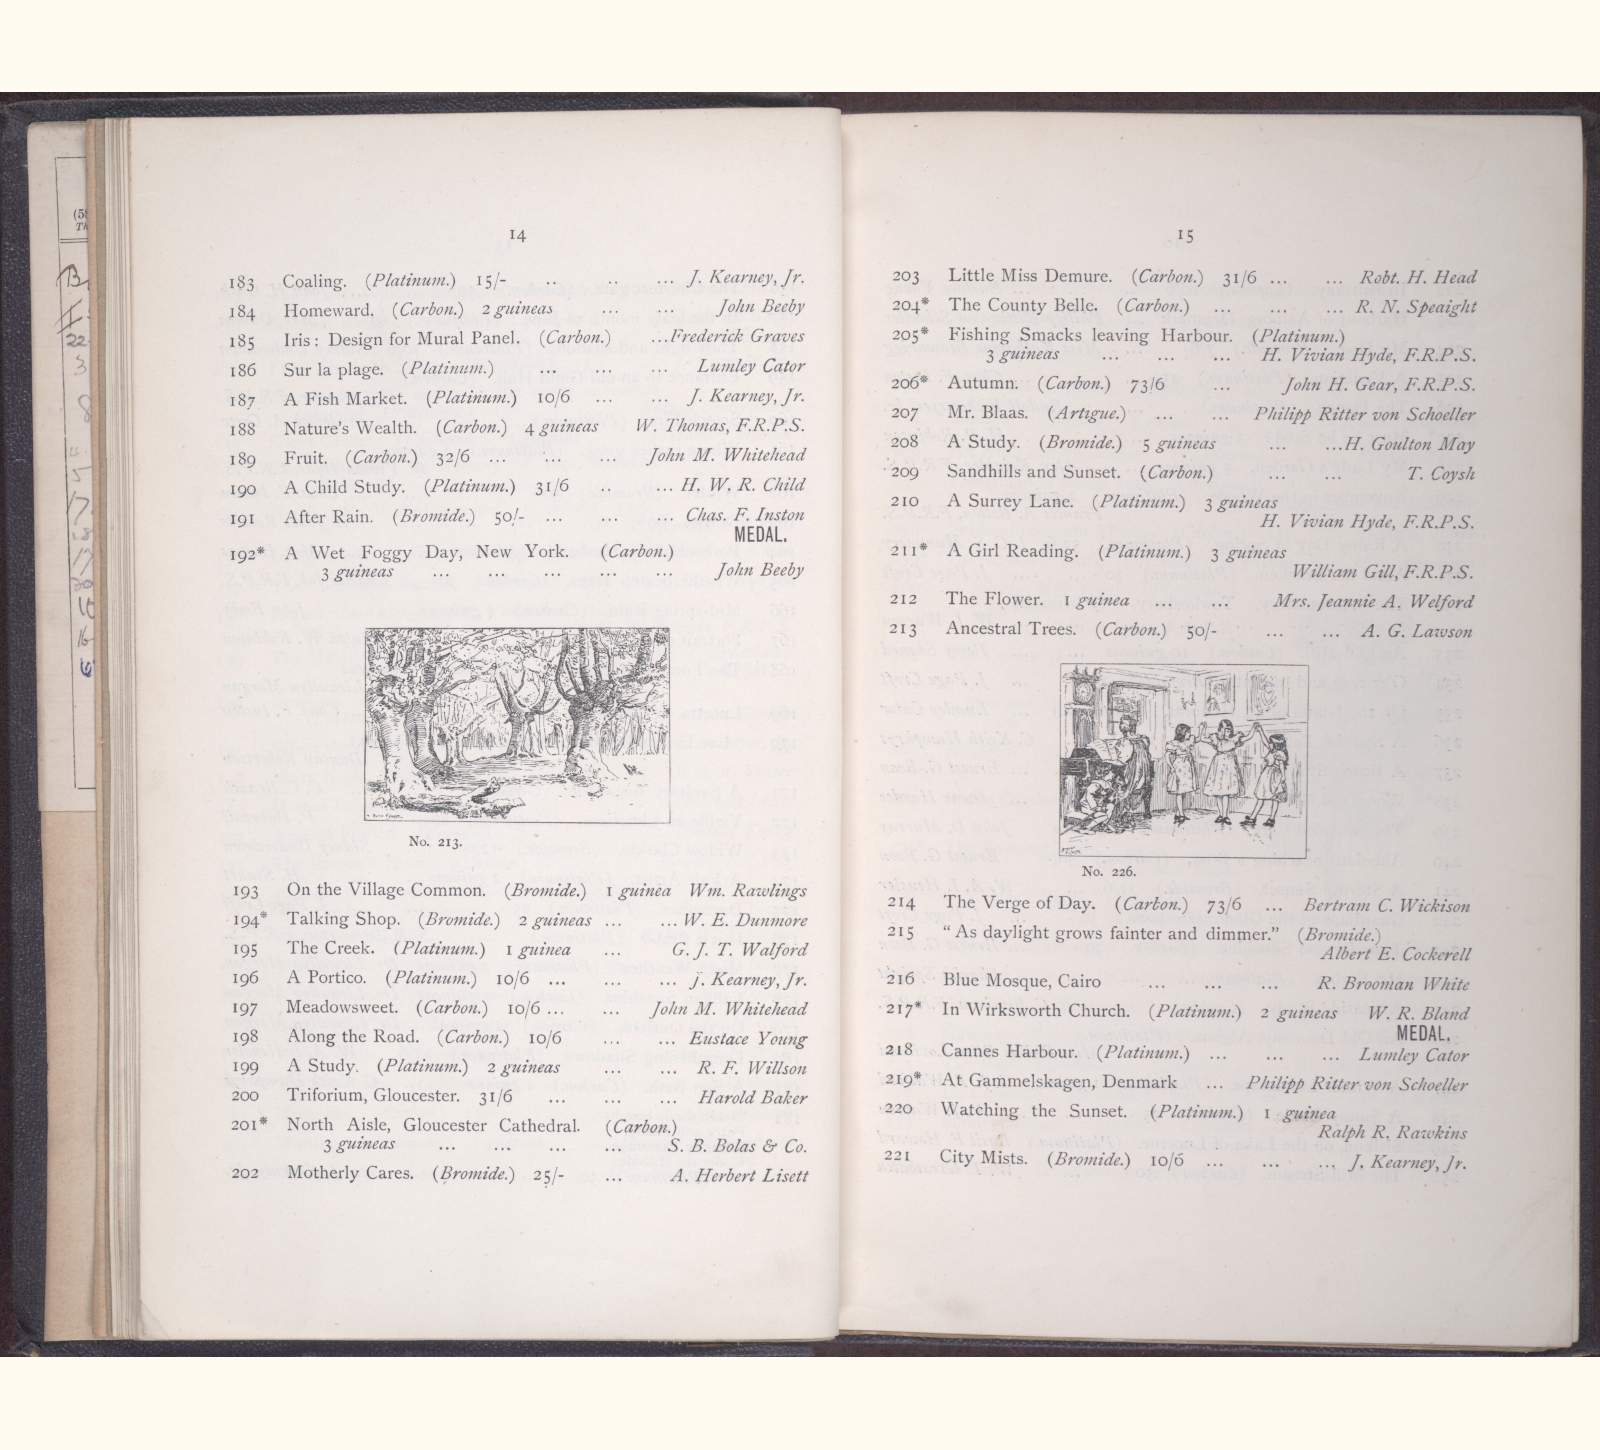 14
183 Coaling. (Platinum.) 15/- .. .. ... J. Kearney, Jr.
184 Homeward. (Carbon.) 2 guineas ... ... John Beeby
185 Iris: Design for Mural Panel. (Carbon.) ...Frederick Graves
186 Sur la plage. (Platinum.) ... ... ... Lumley Cator
187 A Fish Market. (Platinum.) 10/6 ... ... J. Kearney, Jr.
188 Nature's Wealth. (Carbon.) 4 guineas W. Thomas, F.R.P.S.
189 Fruit. (Carbon.) 32/6 ... ... ... John M. Whitehead
190 A Child Study. (Platinum.) 31/6 .. ... H. W. R. Child
191 After Rain. (Bromide.) 50/- ... ... ... Chas. F. Inston
MEDAL.
192* A Wet Foggy Day, New York. (Carbon.)
3 guineas ... ... ... ... ... John Beeby
No. 213.
193 On the Village Common. (Bromide.) 1 guinea Wm. Rawlings
194* Talking Shop. (Bromide.) 2 guineas ... ... W. E. Dunmore
195 The Creek. (Platinum.) 1 guinea ... G. J. T. Walford
196 A Portico. (Platinum.) 10/6 ... ... ... J. Kearney, Jr.
197 Meadowsweet. (Carbon.) 10/6 ... ... John M. Whitehead
198 Along the Road. (Carbon.) 10/6 ... ... Eustace Young
199 A Study. (Platinum.) 2 guineas ... ... R. F. Willson
200 Triforium, Gloucester. 31/6 ... ... ... Harold Baker
201* North Aisle, Gloucester Cathedral. (Carbon.)
3 guineas ... ... ... ... S. B. Bolas & Co.
202 Motherly Cares. (Bromide.) 25/- ... A. Herbert Lisett
15
203 Little Miss Demure. (Carbon.) 31/6 ... ... Robt. H. Head
204* The County Belle. (Carbon.) ... ... ... R. N. Speaight
205* Fishing Smacks leaving Harbour. (Platinum.)
3 guineas ... ... ... H. Vivian Hyde, F.R.P.S.
206* Autumn. (Carbon.) 73/6 ... John H. Gear, F.R.P.S.
207 Mr. Blaas. (Artigue.) ... ... Philipp Ritter von Schoeller
208 A Study. (Bromide.) 5 guineas ... ...H. Goulton May
209 Sandhills and Sunset. (Carbon.) ... ... T. Coysh
210 A Surrey Lane. (Platinum.) 3 guineas
H. Vivian Hyde, F.R.P.S.
211* A Girl Reading. (Platinum.) 3 guineas
William Gill, F.R.P.S.
212 The Flower. 1 guinea ... ... Mrs. Jeannie A. Welford
213 Ancestral Trees. (Carbon.) 50/- ... ... A. G. Lawson
No. 226.
214 The Verge of Day. (Carbon.) 73/6 ... Bertram C. Wickison
215 "As daylight grows fainter and dimmer." (Bromide.)
Albert E. Cockerell
216 Blue Mosque, Cairo ... ... ... R. Brooman White
217* In Wirksworth Church. (Platinum.) 2 guineas W. R. Bland
MEDAL.
218 Cannes Harbour. (Platinum.) ... ... ... Lumley Cator
219* At Gammelskagen, Denmark ... Philipp Ritter von Schoeller
220 Watching the Sunset. (Platinum.) 1 guinea
Ralph R. Rawkins
221 City Mists. (Bromide.) 10/6 ... ... ... J. Kearney, Jr.